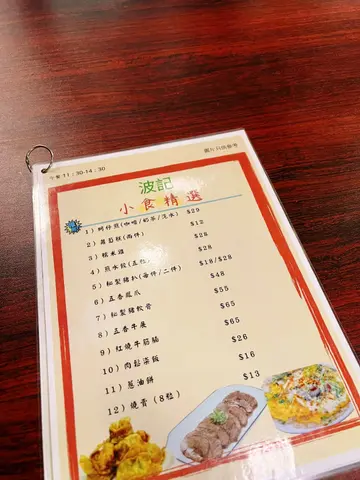 午餐 11：30-14：30
圖片只供參考
波記
小食精選
1) 蚵仔煎(咖啡/奶茶/汽水) $29
2) 蘿蔔糕(兩件) $12
3) 糯米雞 $28
4) 煎水餃(五粒) $28
5) 秘製豬扒(每件/二件) $18/$28
6) 五香鳳爪 $48
7) 秘製豬軟骨 $55
8) 五香牛𦟌 $65
9) 紅燒牛筋腩 $65
10) 肉鬆柒飯 $26
11) 蔥油餅 $16
12) 燒賣 (8粒) $13